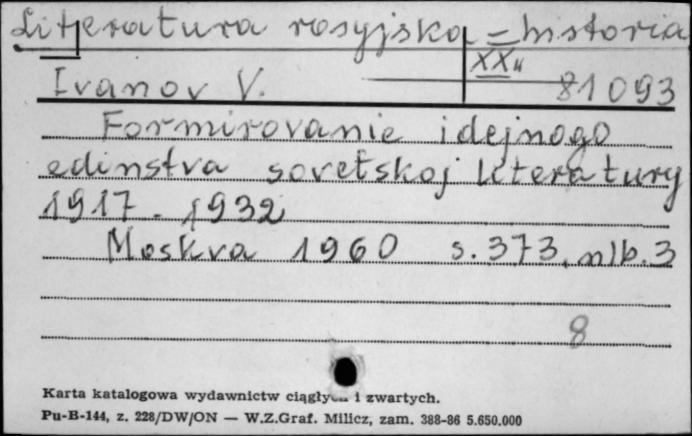 Literatura rosyjska - historia
XX w
Ivanov V. 81093
Formirovanie idejnogo
edinstva sovetskoj literatury
1917 - 1932
Moskva 1960 s. 373, nlb. 3
8
Karta katalogowa wydawnictw ciągłych i zwartych.
Pu-B-144, z. 228/DW/ON — W.Z.Graf. Milicz, zam. 388-86 5.650.000